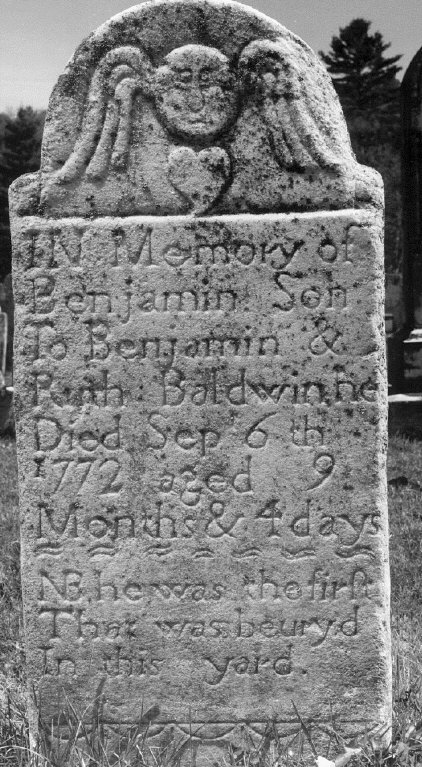 IN Memory of
Benjamin Son
To Benjamin &
Ruth Baldwin, he
Died Sep 6 th
1772 aged 9
Months & 4 days
NB, he was the firſt
That was beury.d
In this yard.